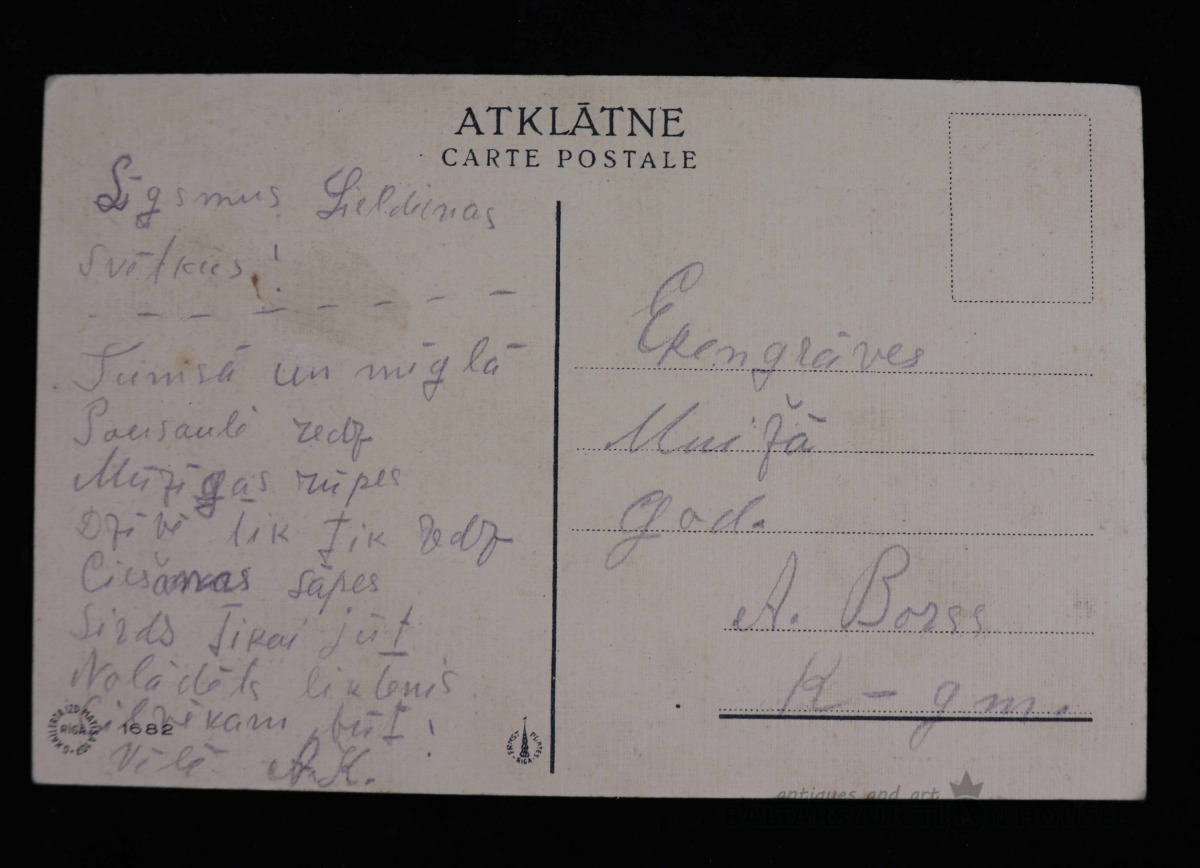 ATKLĀTNE
CARTE POSTALE
Līgsmus Lieldienas
svētkus!
Tumsā un miglā
Pausaulē redz
Mūžīgas rūpes
Dzīvē tik tik redz
Ciešanas sāpes
Sirds tikai jūt
Nolādēts liktenis
Cilvēkam būt!
Vēlē A.K.
Ekengrāves
Muižā
God.
A. Borss
K-gm.
RIGA
1682
ERNST PLATES RIGA
antiques and art